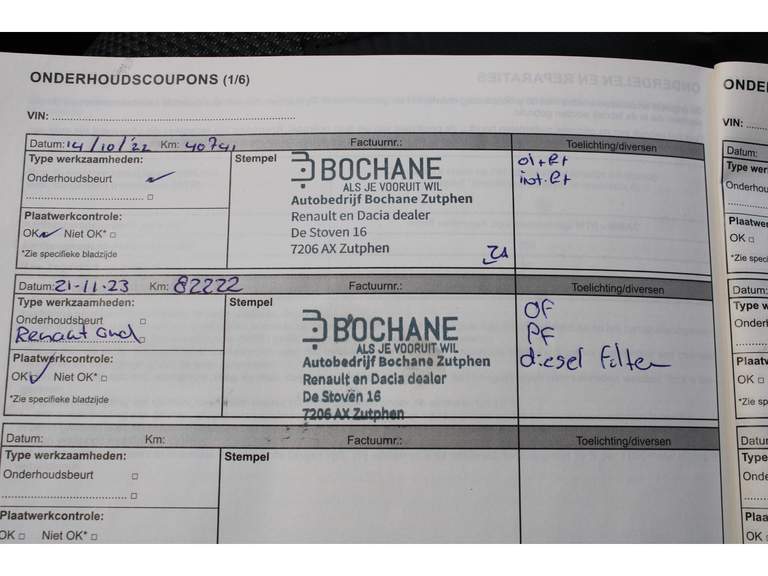 ONDERHOUDSCOUPONS (1/6)
VIN:
Datum: 14/10/'22 Km: 40741 Factuurnr.: Toelichting/diversen
Type werkzaamheden: Stempel
Onderhoudsbeurt
Plaatwerkcontrole:
OK Niet OK*
*Zie specifieke bladzijde
BOCHANE
ALS JE VOORUIT WIL
Autobedrijf Bochane Zutphen
Renault en Dacia dealer
De Stoven 16
7206 AX Zutphen
Datum: 21-11-23 Km: 82222 Factuurnr.: Toelichting/diversen
Type werkzaamheden: Stempel
Onderhoudsbeurt
Plaatwerkcontrole:
OK Niet OK*
*Zie specifieke bladzijde
BOCHANE
ALS JE VOORUIT WIL
Autobedrijf Bochane Zutphen
Renault en Dacia dealer
De Stoven 16
7206 AX Zutphen
OF
PF
diesel filter
Datum: Km: Factuurnr.: Toelichting/diversen
Type werkzaamheden: Stempel
Onderhoudsbeurt
Plaatwerkcontrole:
OK Niet OK*
VIN:
Datum:
OK
Datum:
OK
Datum:
OK